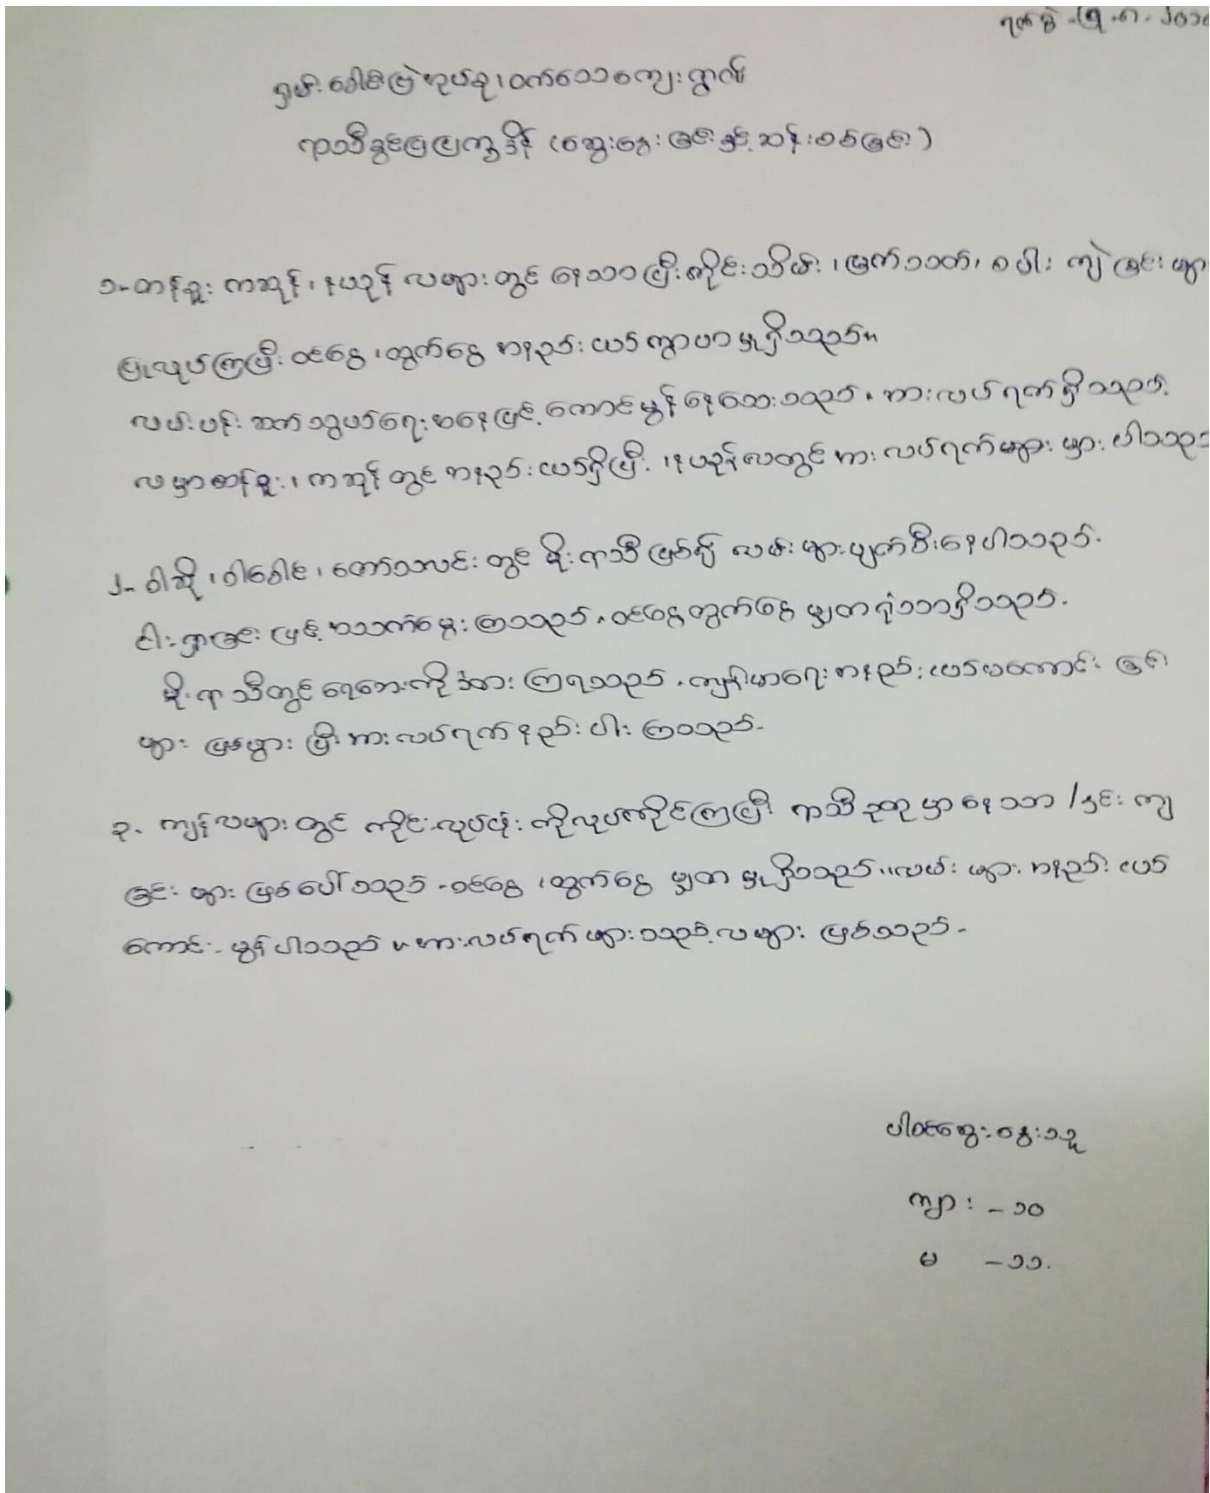 ရက်စွဲ -၂၅.၈.၂၀၁
ရှမ်းခေါင်မြဲအုပ်စု၊ ဝက်သေကျေးရွာ၏
ရာသီခွင်ပြပြက္ခဒိန် (ဆွေးနွေးခြင်းနှင့် ဆန်းစစ်ခြင်း)
၁- တန်ခူး ကဆုန်၊ နယုန် လများတွင် နေသာပြီး ကိုင်းသိမ်း၊ မြက်သတ်၊ စပါး ကျဲခြင်း များ
ပြုလုပ်ကြပြီး ဝင်ငွေ၊ ထွက်ငွေ အနည်းငယ် ကွာဟမှုရှိသည်။
လမ်းပန်းဆက်သွယ်ရေးအနေဖြင့် ကောင်မွန်နေသေးသည်။ အားလပ်ရက်ရှိသည့်
လမှာတန်ခူး၊ ကဆုန်တွင် အနည်းငယ်ရှိပြီး၊ နယုန်လတွင် အားလပ်ရက်များ များပါသည်
၂- ဝါဆို၊ ဝါခေါင်၊ တော်သလင်းတွင် မိုးရာသီဖြစ်၍ လမ်းများပျက်စီးနေပါသည်.
ငါးရှာခြင်းဖြင့် အသက်မွေးကြသည်. ဝင်ငွေထွက်ငွေ မျှတရုံသာရှိသည်.
မိုးရာသီတွင် ရေဘေးကို ခံစားကြရသည်. ကျန်းမာရေး အနည်းငယ်မကောင်းခြင်း
များ ဖြစ်ပွားပြီး အားလပ်ရက်နည်းပါးကြသည်.
၃- ကျန်လများတွင် ကိုင်းလုပ်ငန်းကိုလုပ်ကိုင်ကြပြီး ရာသီဥတုမှာနေသာ / နှင်းကျ
ခြင်းများ ဖြစ်ပေါ်သည်. ဝင်ငွေ၊ ထွက်ငွေ မျှတမှုရှိသည်။ လမ်းများ အနည်းငယ်
ကောင်းမွန်ပါသည်။ အားလပ်ရက်များသည့်လများ ဖြစ်သည်.
ပါဝင်ဆွေးနွေးသူ
ကျား - ၁၀
မ - ၁၁.